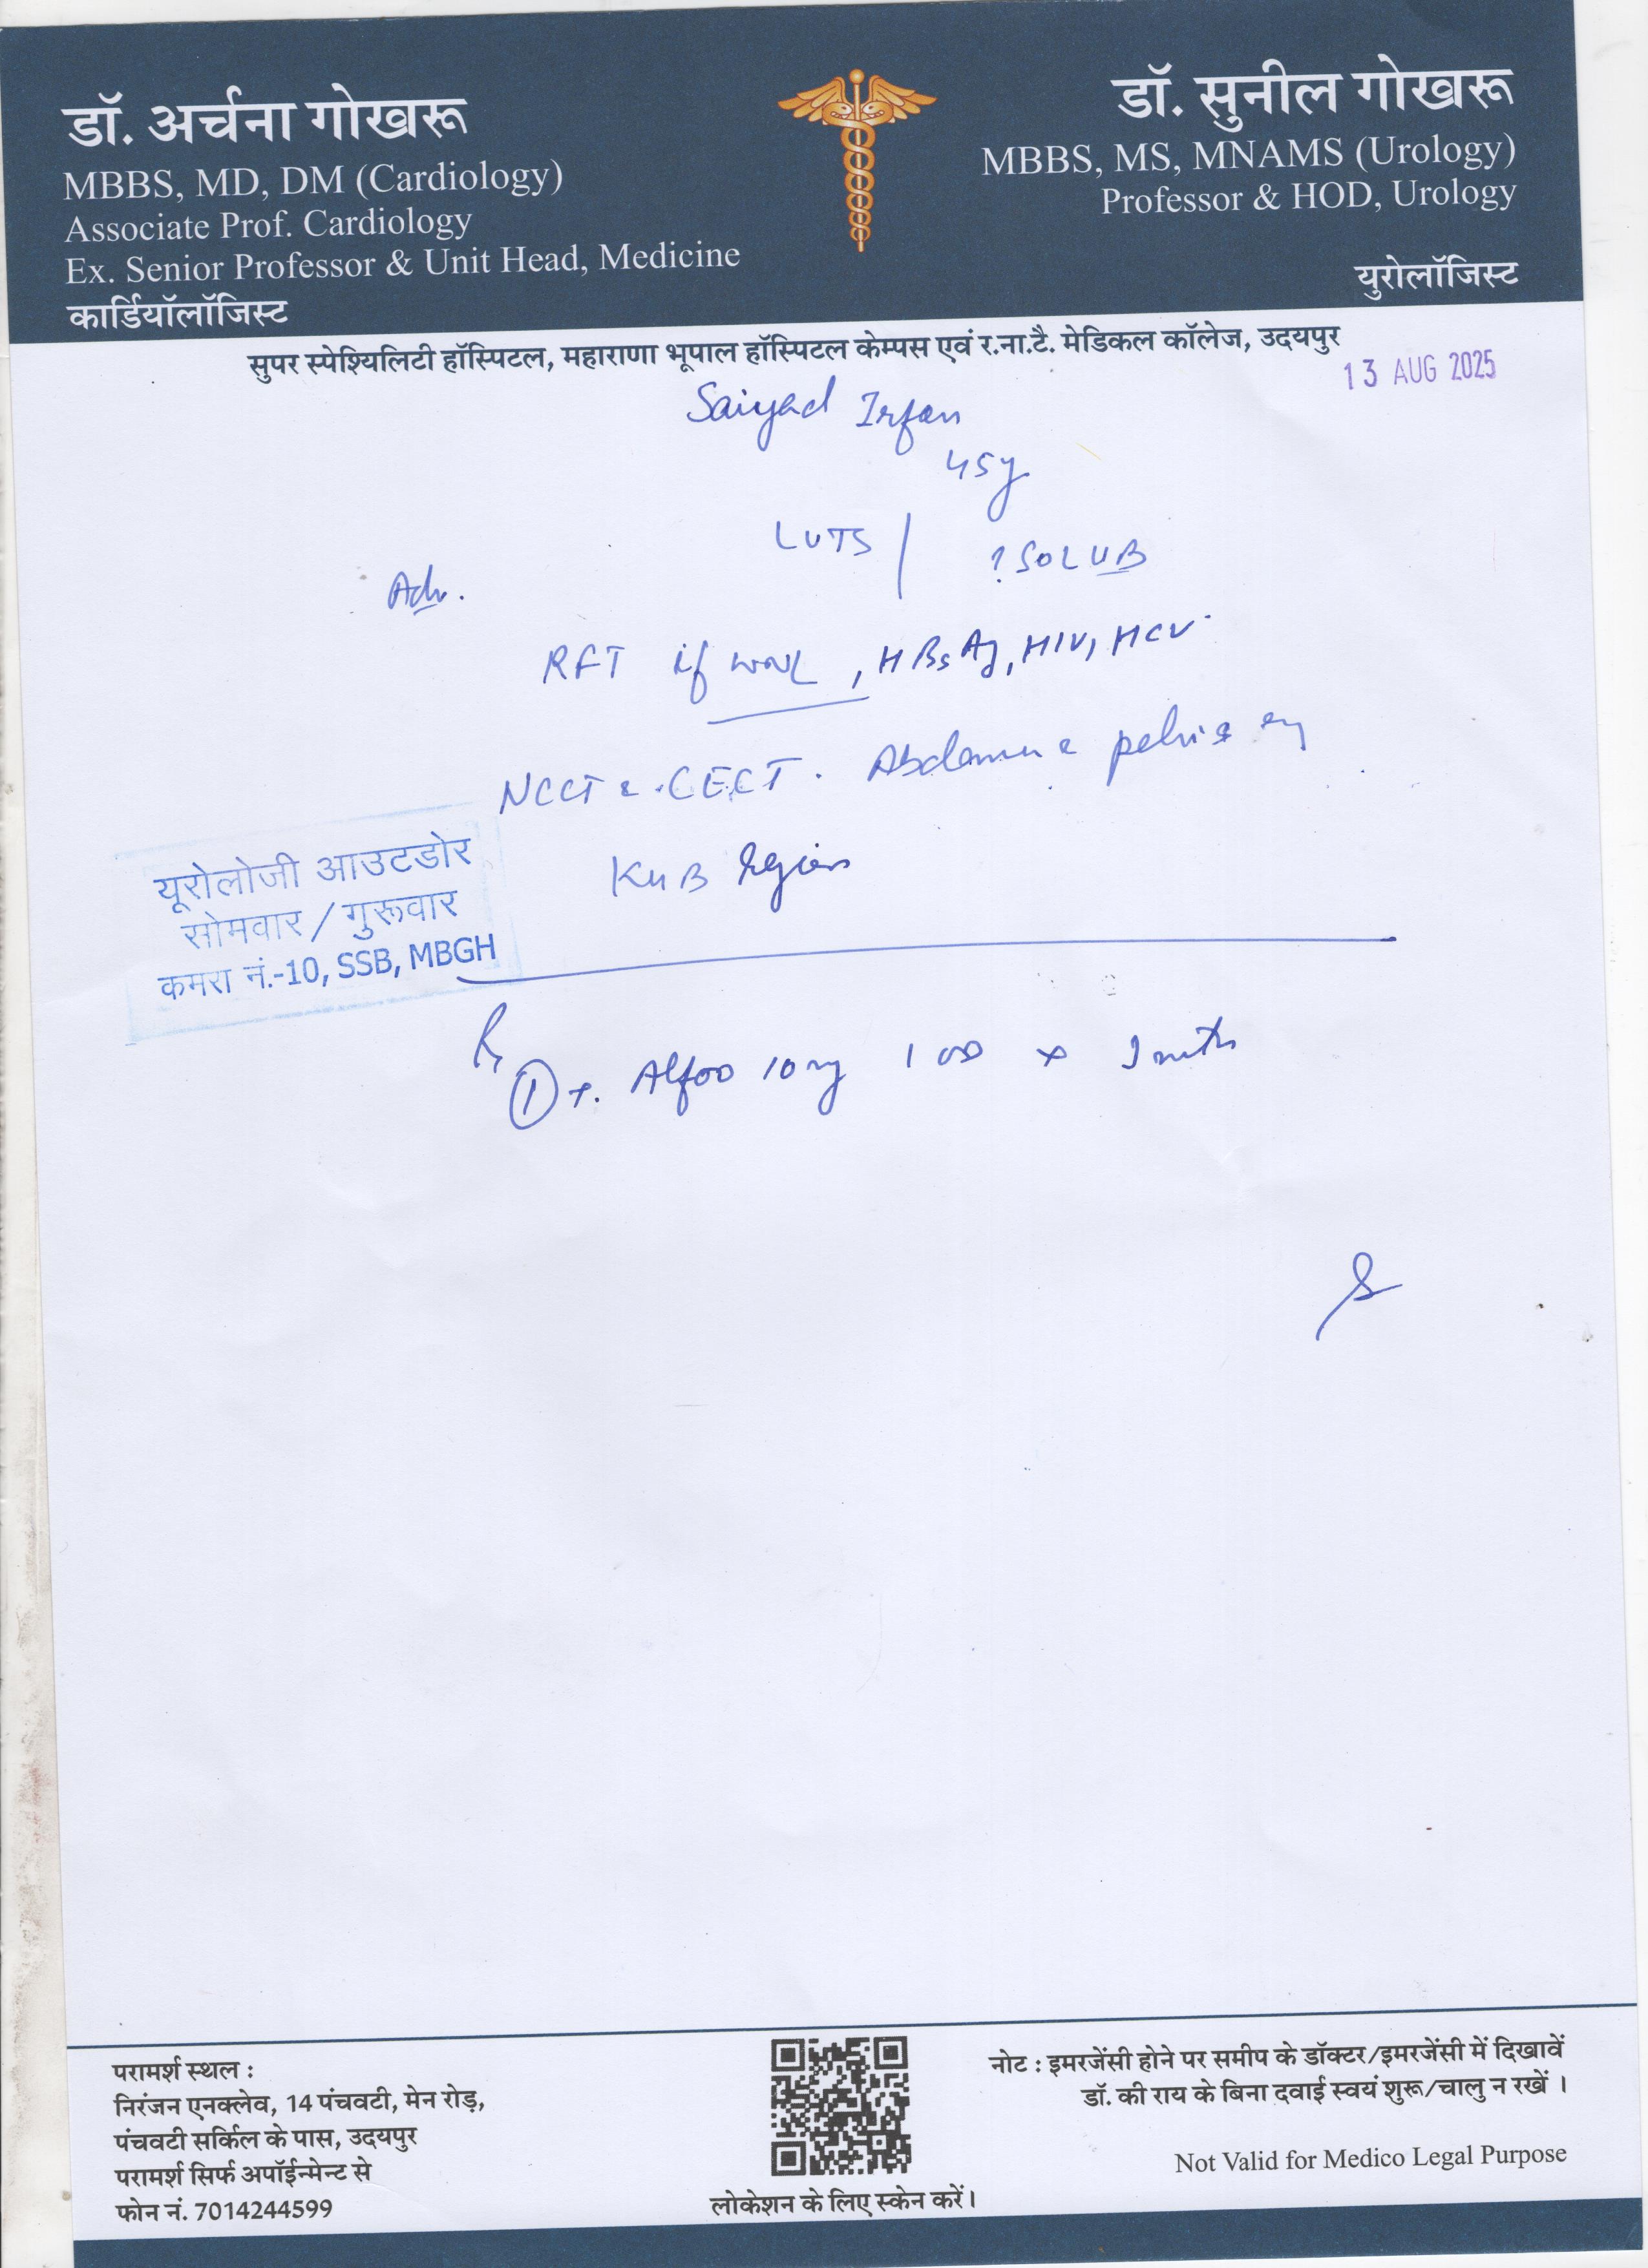 डॉ. अर्चना गोखरू
MBBS, MD, DM (Cardiology)
Associate Prof. Cardiology
Ex. Senior Professor & Unit Head, Medicine
कार्डियॉलॉजिस्ट
डॉ. सुनील गोखरू
MBBS, MS, MNAMS (Urology)
Professor & HOD, Urology
युरोलॉजिस्ट
सुपर स्पेश्यिलिटी हॉस्पिटल, महाराणा भूपाल हॉस्पिटल केम्पस एवं र.ना.टै. मेडिकल कॉलेज, उदयपुर
13 AUG 2025
Saiyad Irfan
45y
LUTS
? SOL UB
Adv.
RFT if wnl, HBsAg, HIV, HCV
NCCT & CECT. Abdomen & pelvis
KUB region
यूरोलोजी आउटडोर
सोमवार / गुरूवार
कमरा नं.-10, SSB, MBGH
Rx
① T. Alfoo 10mg 1 OD x
परामर्श स्थल :
निरंजन एनक्लेव, 14 पंचवटी, मेन रोड़,
पंचवटी सर्किल के पास, उदयपुर
परामर्श सिर्फ अपॉईन्मेन्ट से
फोन नं. 7014244599
लोकेशन के लिए स्केन करें।
नोट : इमरजेंसी होने पर समीप के डॉक्टर/इमरजेंसी में दिखावें
डॉ. की राय के बिना दवाई स्वयं शुरू/चालु न रखें ।
Not Valid for Medico Legal Purpose